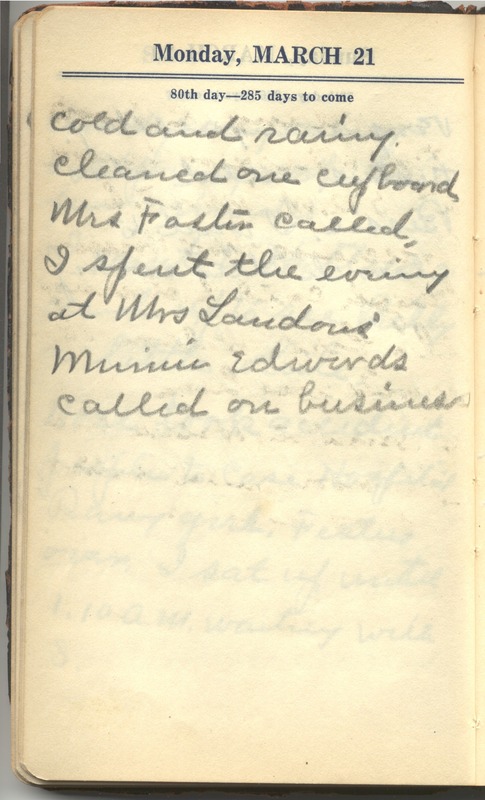 Monday, MARCH 21
80th day—285 days to come
cold and rainy.
cleaned one cupboard
Mrs Foster called,
I spent the evening
at Mrs Landons'
Minnie Edwards
called on business
I sat up until